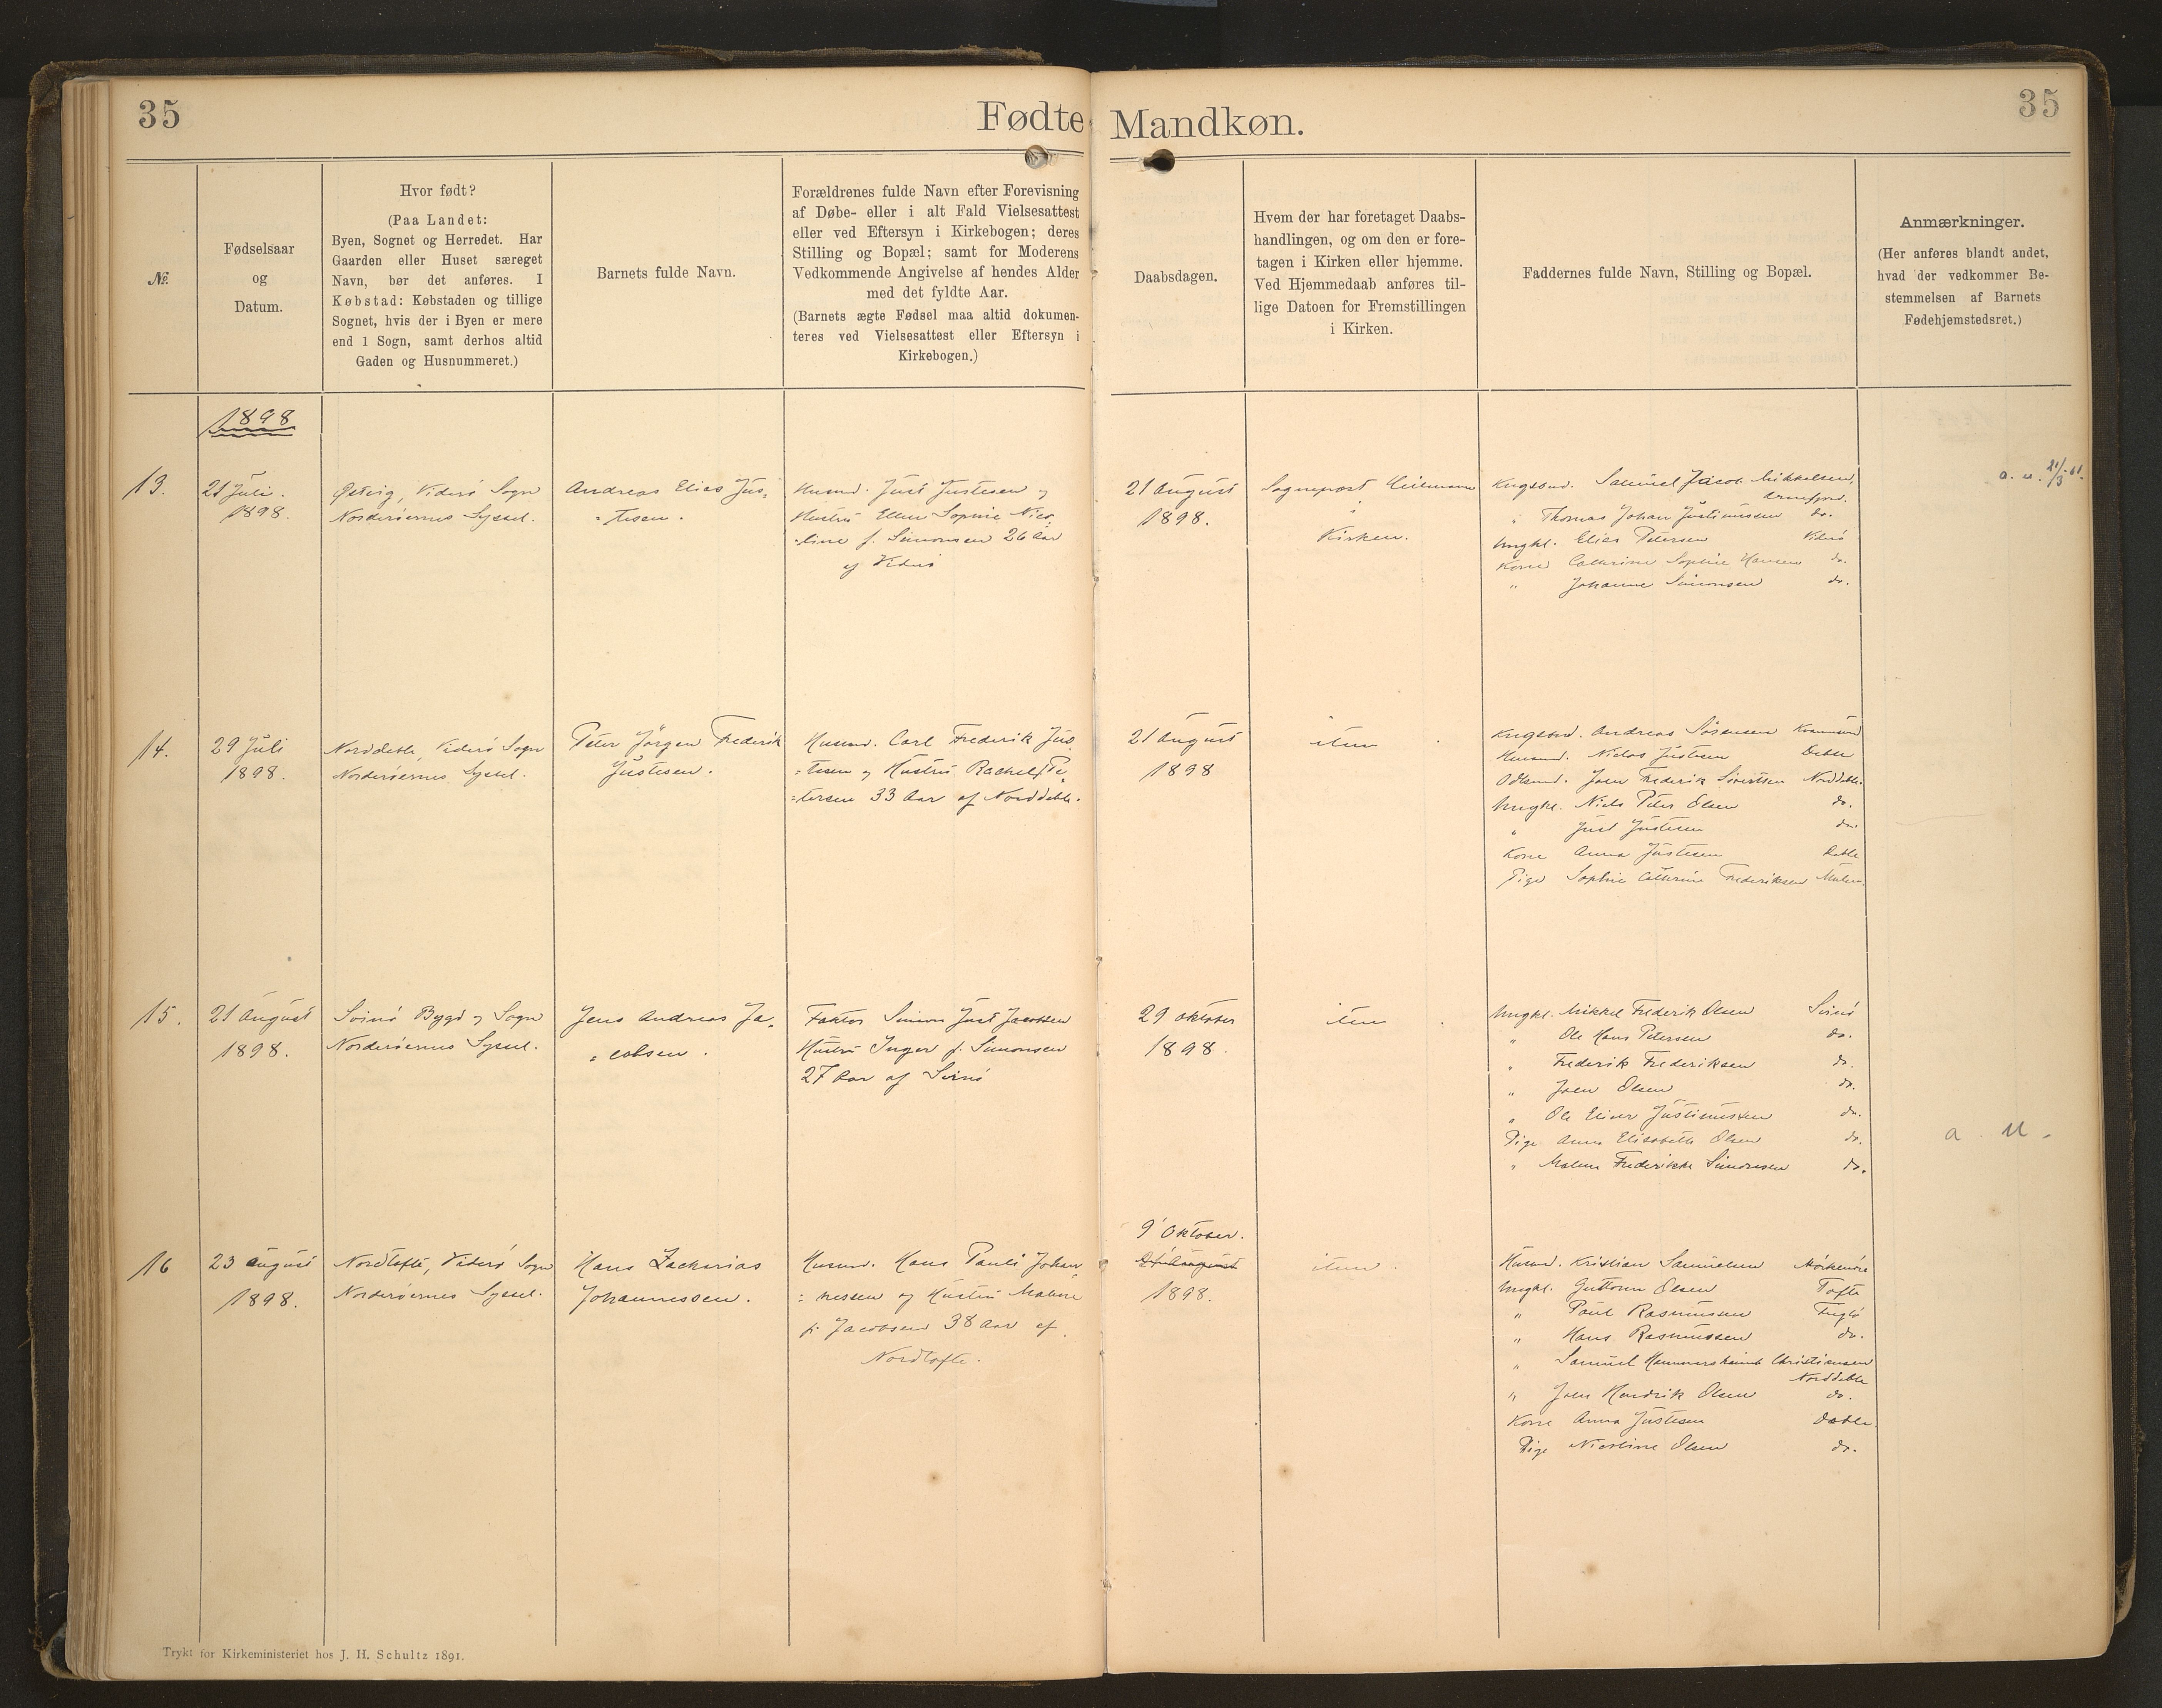 35
Fødte Mandkøn.
35
№.
Fødselsaar
og
Datum.
Hvor født?
(Paa Landet:
Byen, Sognet og Herredet. Har
Gaarden eller Huset særeget
Navn, bør det anføres. I
Købstad: Købstaden og tillige
Sognet, hvis der i Byen er mere
end 1 Sogn, samt derhos altid
Gaden og Husnummeret.)
Barnets fulde Navn.
Forældrenes fulde Navn efter Forevisning
af Døbe- eller i alt Fald Vielsesattest
eller ved Eftersyn i Kirkebogen; deres
Stilling og Bopæl; samt for Moderens
Vedkommende Angivelse af hendes Alder
med det fyldte Aar.
(Barnets ægte Fødsel maa altid dokumen-
teres ved Vielsesattest eller Eftersyn i
Kirkebogen.)
Daabsdagen.
Hvem der har foretaget Daabs-
handlingen, og om den er fore-
tagen i Kirken eller hjemme.
Ved Hjemmedaab anføres til-
lige Datoen for Fremstillingen
i Kirken.
Faddernes fulde Navn, Stilling og Bopæl.
Anmærkninger.
(Her anføres blandt andet,
hvad der vedkommer Be-
stemmelsen af Barnets
Fødehjemstedsret.)
1898
13.
21 Juli.
1898.
Viderø Sogn
Norderøernes Syssel.
Andreas Elias Jus=
=tesen.
Husmd. Just Justesen og
Hustru Ellen Sophie Nico=
=line f. Simonsen 26 Aar
af Viderø
21 August
1898.
Sognepræst
Kirken.
Kngsbmd. Samuel Jacob Mikkelsen,
Arnefjord.
" Thomas Johan Justinussen do.
Ungkl. Elias Petersen Viderø
Kone Cathrine Sophie Hansen do.
" Johanne Simonsen do.
a. u. 21/3
14.
29 Juli
1898.
Norddeble, Viderø Sogn
Norderøernes Syssel.
Peter Jørgen Frederik
Justesen.
Husmd. Carl Frederik Jus=
=tesen og Hustru Rachel Pe=
=tersen 33 Aar af Norddeble.
21 August
1898
item
Kngsbmd. Andreas Sørensen
Husmd. Niclas Justesen Deble
Odlsmd. Joen Frederik Norddeble.
Ungkl. Niels Peter Olsen do.
" Just Justesen do.
Kone Anna Justesen Deble
Pige Sophie Cathrine Frederiksen
15.
21 August
1898.
Svinø Bygd og Sogn
Norderøernes Syssel.
Jens Andreas Ja=
=cobsen.
Faktor Simon Just Jacobsen
Hustru Inger f. Simonsen
27 Aar af Svinø
29 Oktober
1898.
item
Ungkl. Mikkel Frederik Olsen Svinø
" Ole Hans Petersen do.
" Frederik Frederiksen do.
" Joen Olsen do.
" Ole Justinussen do.
Pige Anna Elisabeth Olsen do.
" Malene Frederikke Simonsen do.
a. u.
16
23 August
1898.
Nordtofte, Viderø Sogn
Norderøernes Syssel.
Hans Zacharias
Johannessen.
Husmd. Hans Pauli Johan=
=nessen og Hustru Malene
f. Jacobsen 38 Aar af
Nordtofte.
9 Oktober.
1898.
item.
Husmd. Kristian Samuelsen
Ungkl. Guttorm Olsen Tofte
" Poul Rasmussen Fuglø
" Hans Rasmussen do.
" Samuel Hammershaimb Christiansen
Norddeble
" Joen Hendrik Olsen do.
Kone Anna Justesen Deble.
Pige Nicoline Olsen do.
Trykt for Kirkeministeriet hos J. H. Schultz 1891.